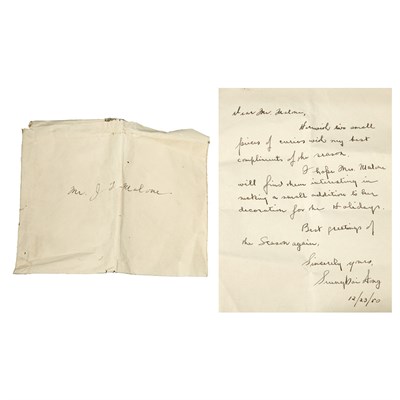 Mr. J. Malone.
Dear Mr. Malone,
Herewith two small
pieces of curios with my best
compliments of the season
I hope Mrs. Malone
will find them interesting in
making a small addition to her
decoration for the Holidays.
Best greetings of
the Season again.
Sincerely yours,
12/23/50